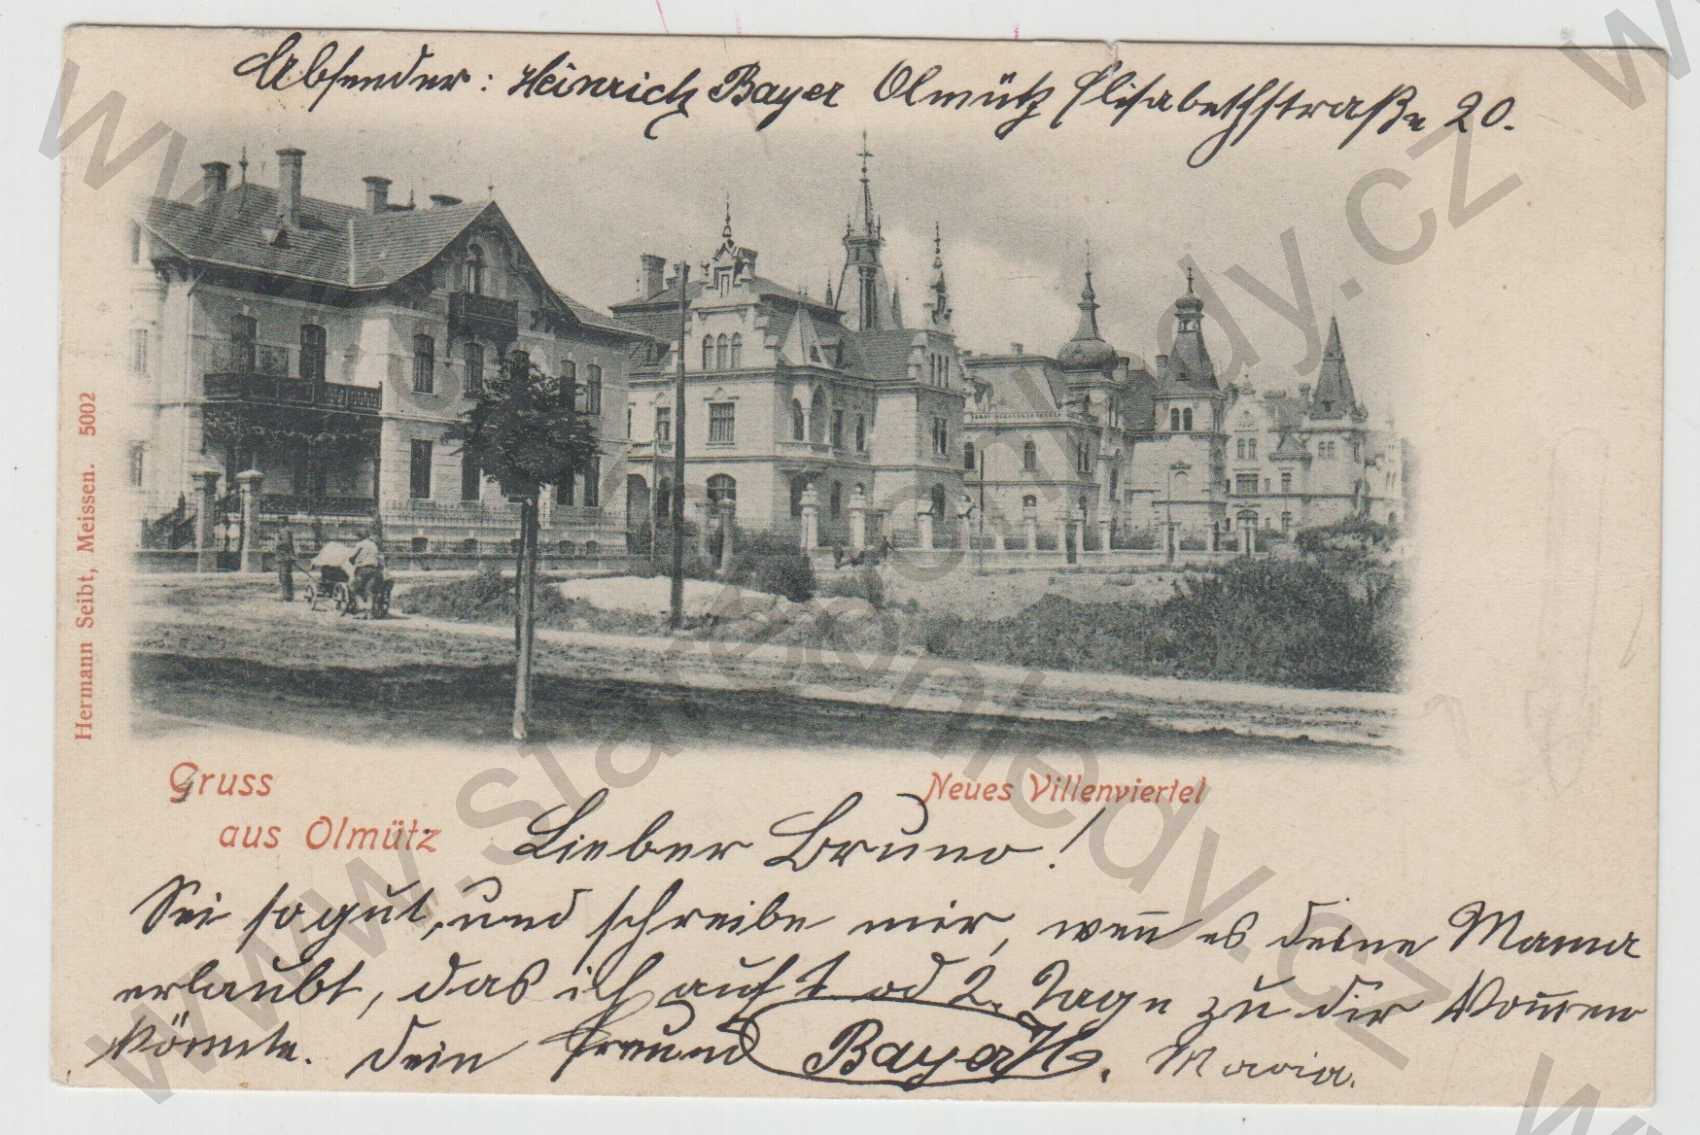 Absender: Heinrich Bayer Olmütz Elisabethstraße 20.
Hermann Seibt, Meissen. 5002
Gruss
aus Olmütz
Neues Villenviertel
Lieber Bruno!
Sei so gut, und schreibe mir, wen̅ es deine Mama
erlaubt, das ich auf 1 od 2. Tage zu dir kom̅en
könnte. dein freund Bayer H. Maria.
www.starepohledy.cz
www.starepohledy.cz